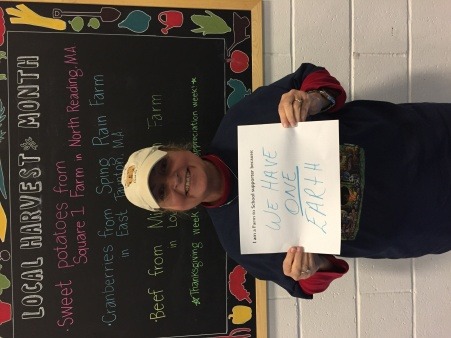 LOCAL HARVEST MONTH
Sweet potatoes from
Square 1 Farm in North Reading, MA
Cranberries from Spring Rain Farm
in East MA
Beef from Farm
in
*Thanksgiving week appreciation week!*
I am a Farm to School supporter because:
WE HAVE
ONE
EARTH